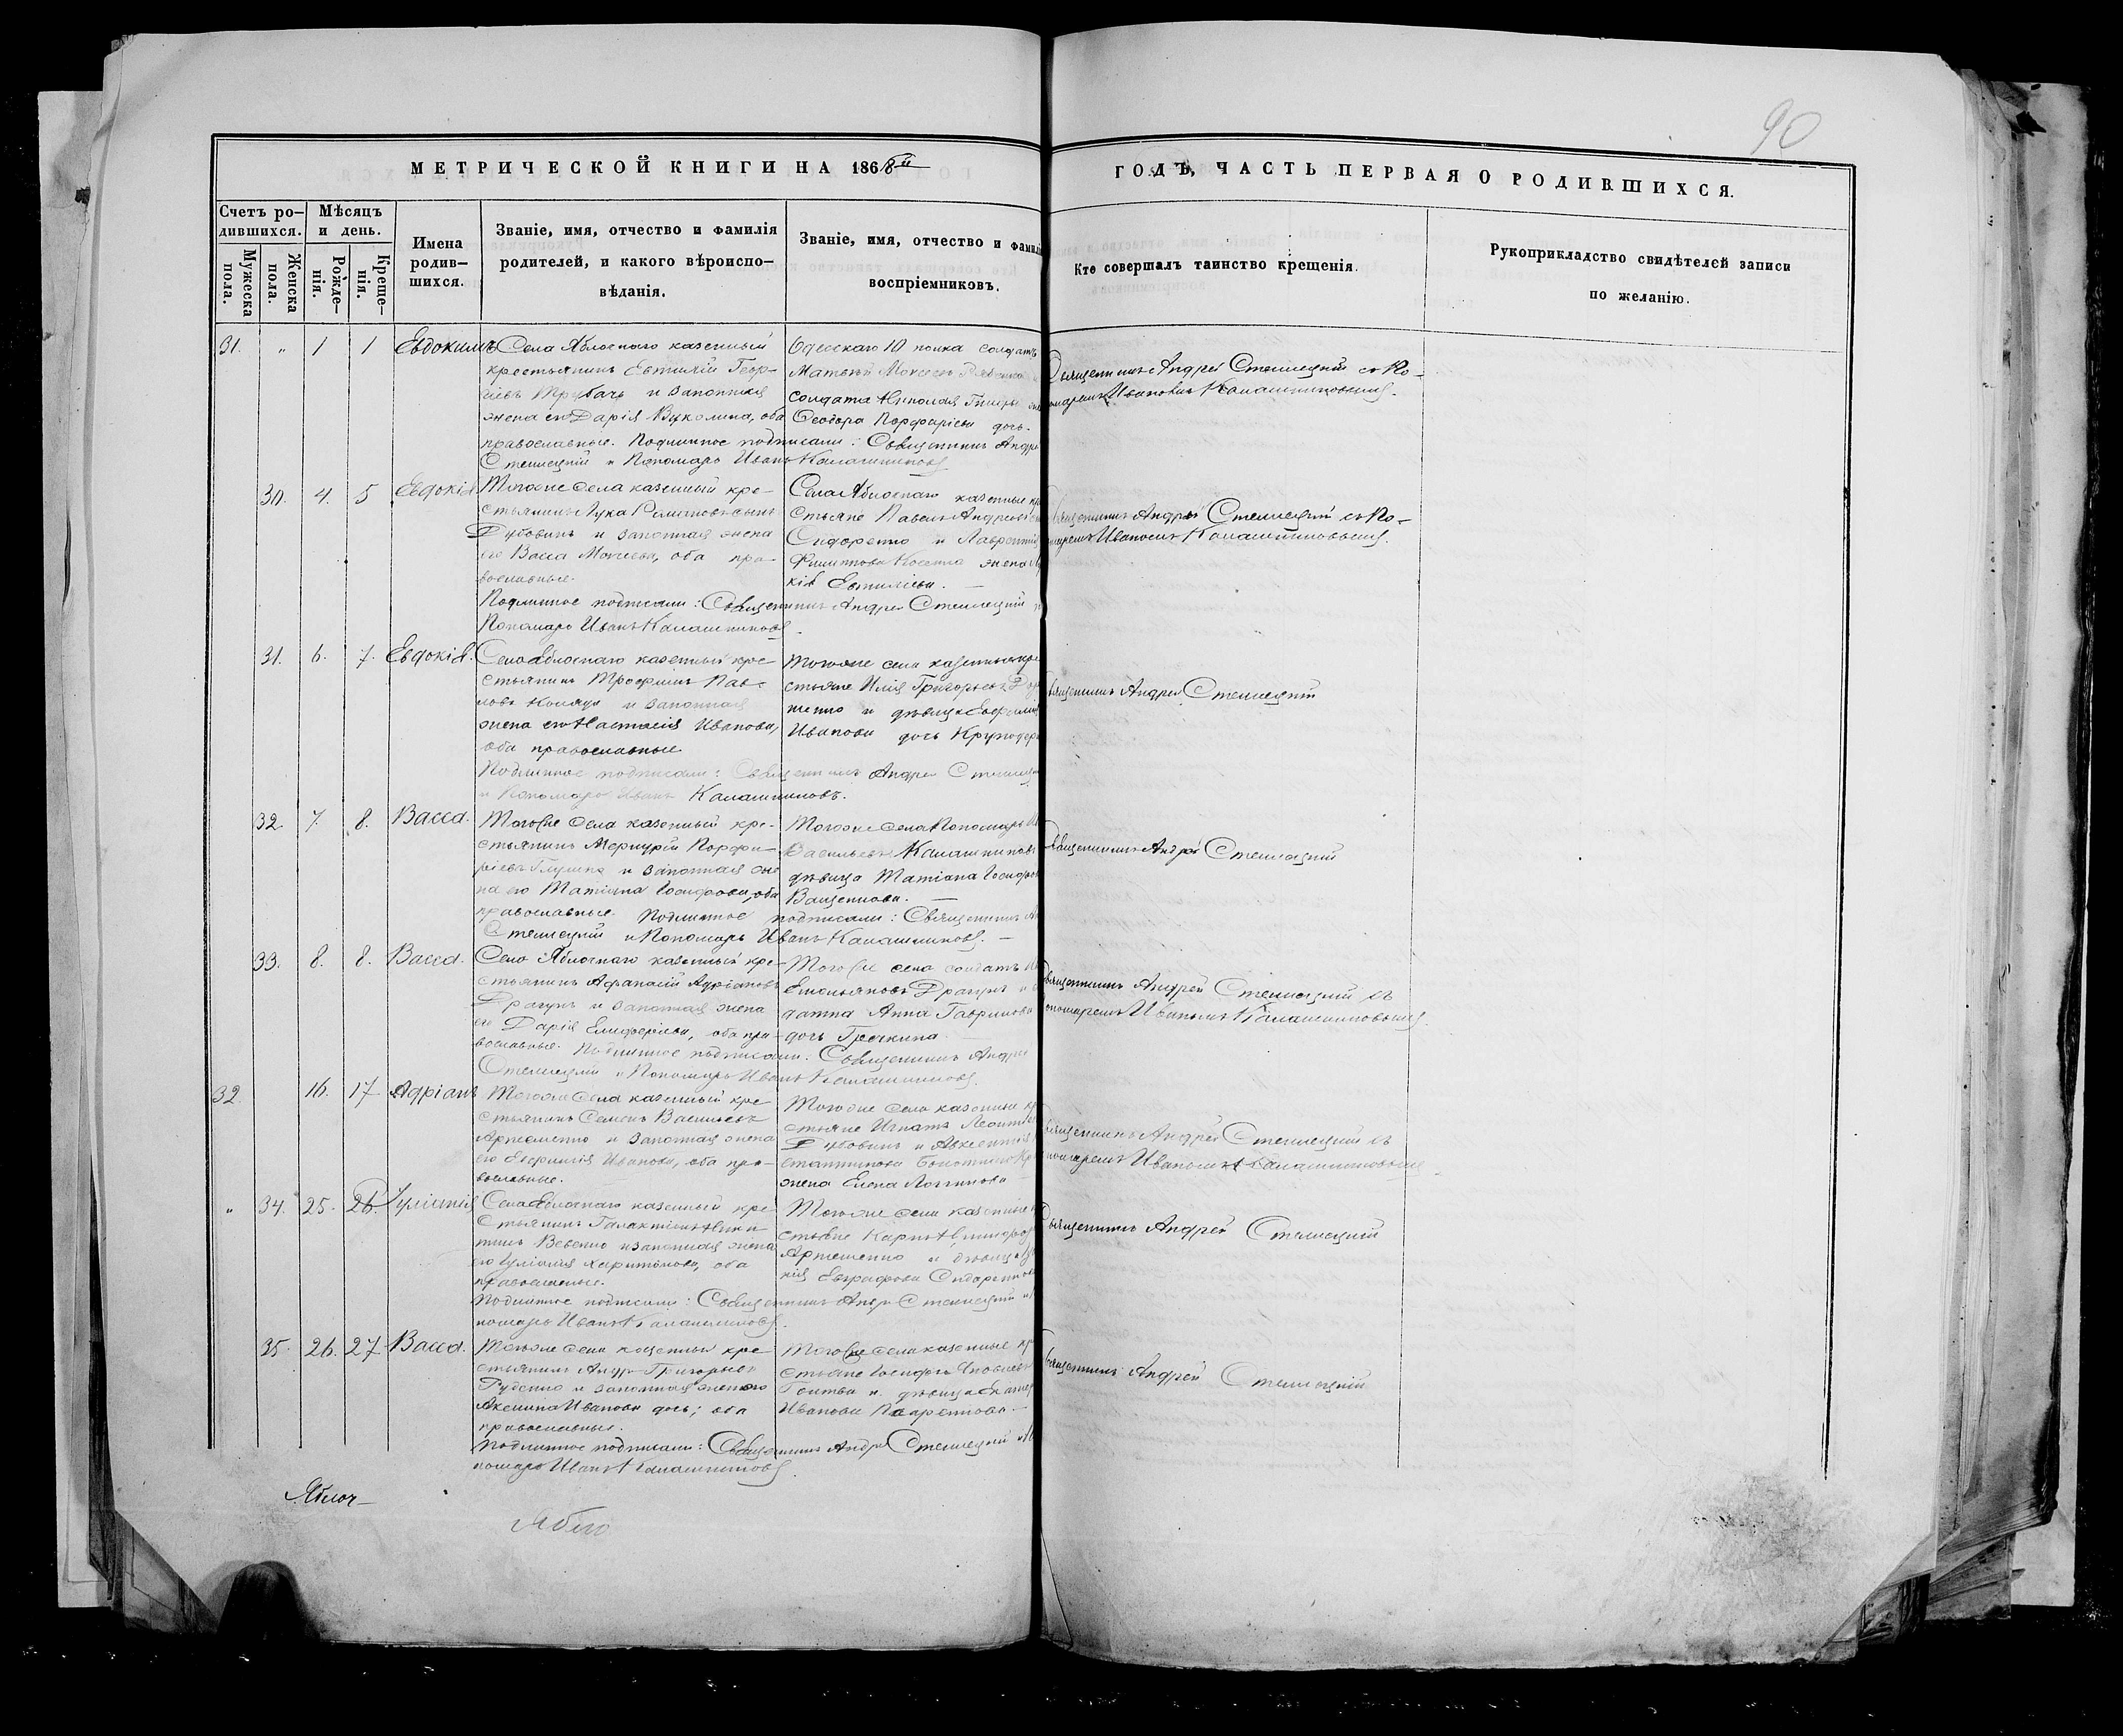 90
МЕТРИЧЕСКОЙ КНИГИ НА 1868й
ГОДЪ, ЧАСТЬ ПЕРВАЯ О РОДИВШИХСЯ.
Счетъ ро-
дившихся.
Мужеска
пола.
Женска
пола.
Мѣсяцъ
и день.
Рожде-
нія.
Креще-
нія.
Имена
родив-
шихся.
Званіе, имя, отчество и фамилія
родителей, и какого вѣроиспо-
вѣданія.
Званіе, имя, отчество и фамилі
воспріемниковъ.
Кто совершалъ таинство крещенія.
Рукоприкладство свидѣтелей записи
по желанію.
31. " 1 1 Евдокимъ
Села Яблочнаго казенный
крестьянинъ Евтихій Геор-
гіевъ Трубачъ и законная
жена его Дарія Вуколина, оба
православные. Подлинное подписали: Священникъ Андрей
Стеллецкій и Пономарь Иванъ Калашниковъ
Одесскаго 10 полка солдатъ
Матвѣй Моисеевъ
солдата Николая
Ѳеодора Порфиріева дочь.
Священникъ Андрей Стеллецкій съ По-
номаремъ Иваномъ Калашниковымъ.
30. 4. 5 Евдокія
Тогоже села казенный кре-
стьянинъ Лука Романовъ сынъ
Дубовикъ и законная жена
его Васса Моисеева, оба пра-
вославные.
Подлинное подписали: Священникъ Андрей Стеллецкій
Пономарь Иванъ Калашниковъ
Села Яблочнаго казенные кре
стьяне Павелъ Андреевъ
Сидоренко и Лаврентія
Филиппова жена
кія Евтихіева.
Священникъ Андрей Стеллецкій съ По-
номаремъ Иваномъ Калашниковымъ.
31. 6. 7. Евдокія.
Села Яблочнаго казенный кре
стьянинъ Трофимъ Пав-
ловъ Коляда и законная
жена его Настасія Иванова,
оба православные
Подлинное подписали: Священникъ Андрей Стеллецкій
и Пономарь Иванъ Калашниковъ.
Тогоже села казенные кре
стьяне Илія Григорьевъ
женко и дѣвица Евфимія
Иванова дочь
Священникъ Андрей Стеллецкій
32. 7. 8. Васса.
Тогоже села казенный кре-
стьянинъ Меркурій Порфи-
ріевъ Глушко и законная же
на его Татіана Іосифова, оба
православные. Подлинное подписали: Священникъ
Стеллецкій и Пономарь Иванъ Калашниковъ.
Тогоже села Пономарь
Васильевъ Калашниковъ
дѣвица Татіана Іосифова
Ващенкова.
Священникъ Андрей Стеллецкій
33. 8. 8. Васса.
Села Яблочнаго казенный кре-
стьянинъ Афанасій Адріановъ
Драгунъ и законная жена
его Дарія Елиферіева, оба пра-
вославные. Подлинное подписали: Священникъ Андрей
Стеллецкій и Пономарь Иванъ Калашниковъ.
Тогоже села солдатъ
Емельяновъ Драгунъ и
датка Анна Гаврилова
дочь Гречкина.
Священникъ Андрей Стеллецкій съ
Пономаремъ Иваномъ Калашниковымъ.
32. 16. 17 Адріанъ
Тогоже села казенный кре
стьянинъ Семенъ Васильевъ
Артеменко и законная жена
его Евфимія Иванова, оба пра-
вославные.
Тогоже села казенные кре
стьяне Игнатъ Леонтіевъ
Дубовикъ и Авксентія
стантинова
жена Елена Логгинова
Священникъ Андрей Стеллецкій съ
Пономаремъ Иваномъ Калашниковымъ
" 34. 25. 26. Іуліанія
Села Яблочнаго казенный кре
стьянинъ Галактіонъ Ники
тинъ и законная жена
его Іуліанія Харитонова, оба
православные.
Подлинное подписали: Священникъ Андрей Стеллецкій и
номарь Иванъ Калашниковъ.
Тогоже села казенные
стьяне Карпъ Никифоровъ
Артеменко и дѣвица
кія Евграфова Сидоренкова
Священникъ Андрей Стеллецкій
35. 26. 27 Васса.
Тогоже села казенный кре
стьянинъ Андрей Григорьевъ
Руденко и законная жена его
Акилина Иванова дочь; оба
православные.
Подлинное подписали: Священникъ Андрей Стеллецкій и По
номарь Иванъ Калашниковъ.
Тогоже села казенные кр
стьяне Іосифъ Яковлевъ
Голтва и дѣвица
Иванова
Священникъ Андрей Стеллецкій
Яблоч-
Ябло